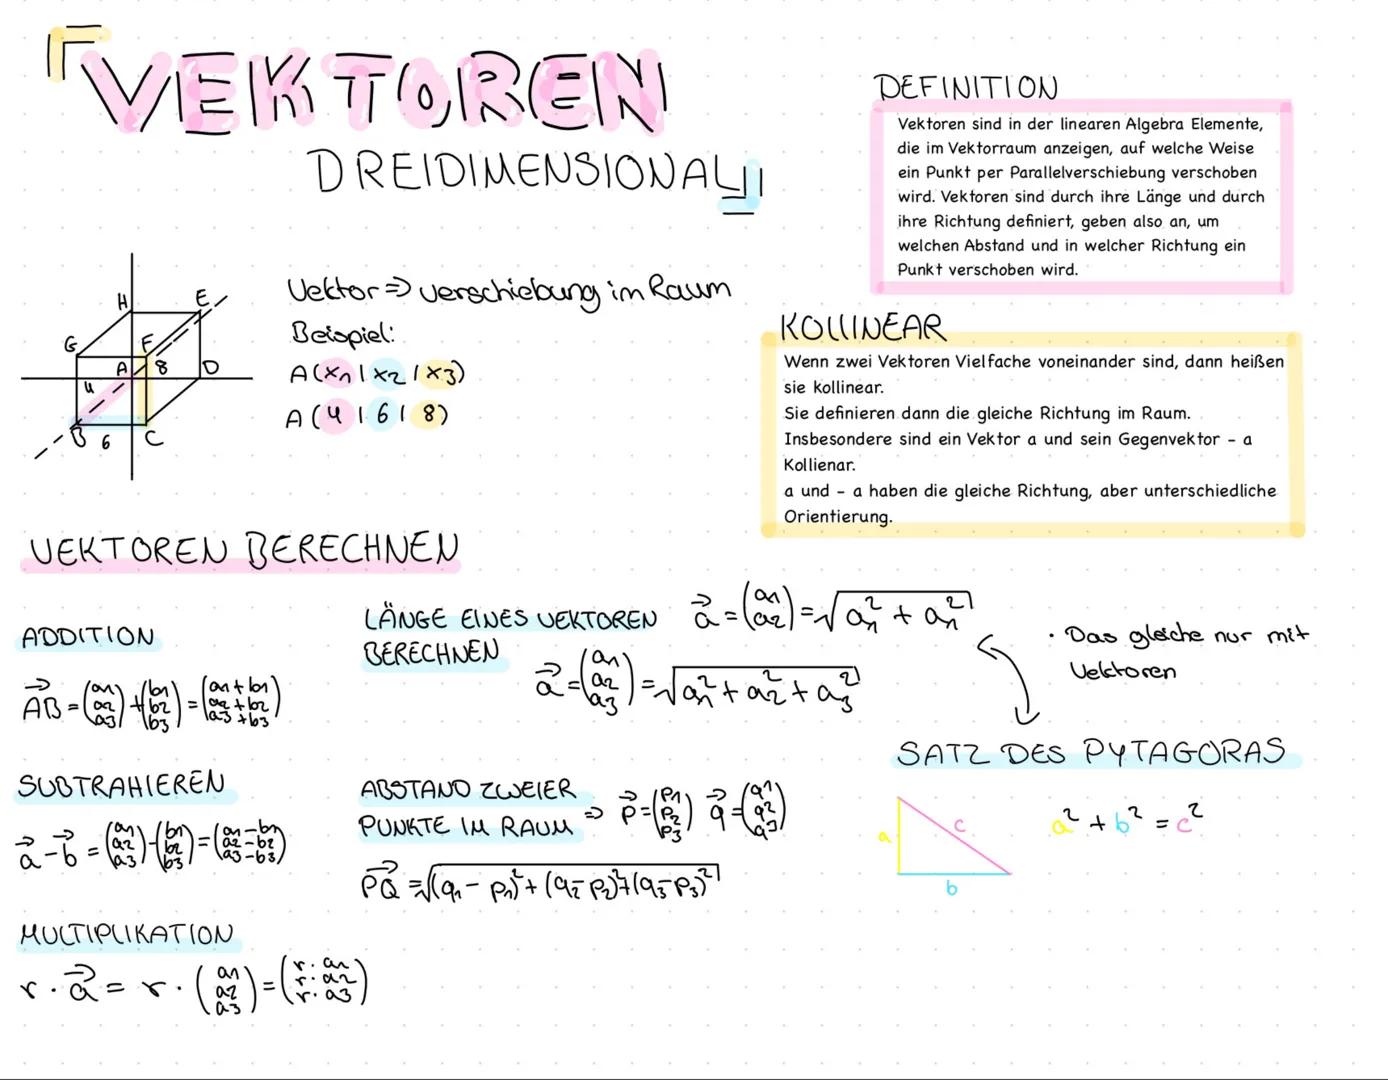 VEKTOREN
DREIDIMENSIONAL
DEFINITION
Vektoren sind in der linearen Algebra Elemente,
die im Vektorraum anzeigen, auf welche Weise
ein Punkt per Parallelverschiebung verschoben
wird. Vektoren sind durch ihre Länge und durch
ihre Richtung definiert, geben also an, um
welchen Abstand und in welcher Richtung ein
Punkt verschoben wird.
H E
G F
A 8 D
4
B 6 C
Vektor => verschiebung im Raum
Beispiel:
A(x1 | x2 | x3)
A(4 | 6 | 8)
KOLLINEAR
Wenn zwei Vektoren Vielfache voneinander sind, dann heißen
sie Kollinear.
Sie definieren dann die gleiche Richtung im Raum.
Insbesondere sind ein Vektor a und sein Gegenvektor - a
Kollienar.
a und - a haben die gleiche Richtung, aber unterschiedliche
Orientierung.
VEKTOREN BERECHNEN
ADDITION
→AB = (a1 a2 a3) + (b1 b2 b3) = (a1 + b1 a2 + b2 a3 + b3)
SUBTRAHIEREN
→a - →b = (a1 a2 a3) - (b1 b2 b3) = (a1 - b1 a2 - b2 a3 - b3)
MULTIPLIKATION
r · →a = r · (a1 a2 a3) = (r · a1 r · a2 r · a3)
LÄNGE EINES VEKTOREN
BERECHNEN
→a = (a1 a2) = √(a1² + a1²)
→a = (a1 a2 a3) = √(a1² + a2² + a3²)
ABSTAND ZWEIER
PUNKTE IM RAUM => →p = (p1 p2 p3) →q = (q1 q2 q3)
→PQ = √((q1 - p1)² + (q2 - p2)² + (q3 - p3)²)
· Das gleiche nur mit
Vektoren
SATZ DES PYTAGORAS
a c b
a² + b² = c²